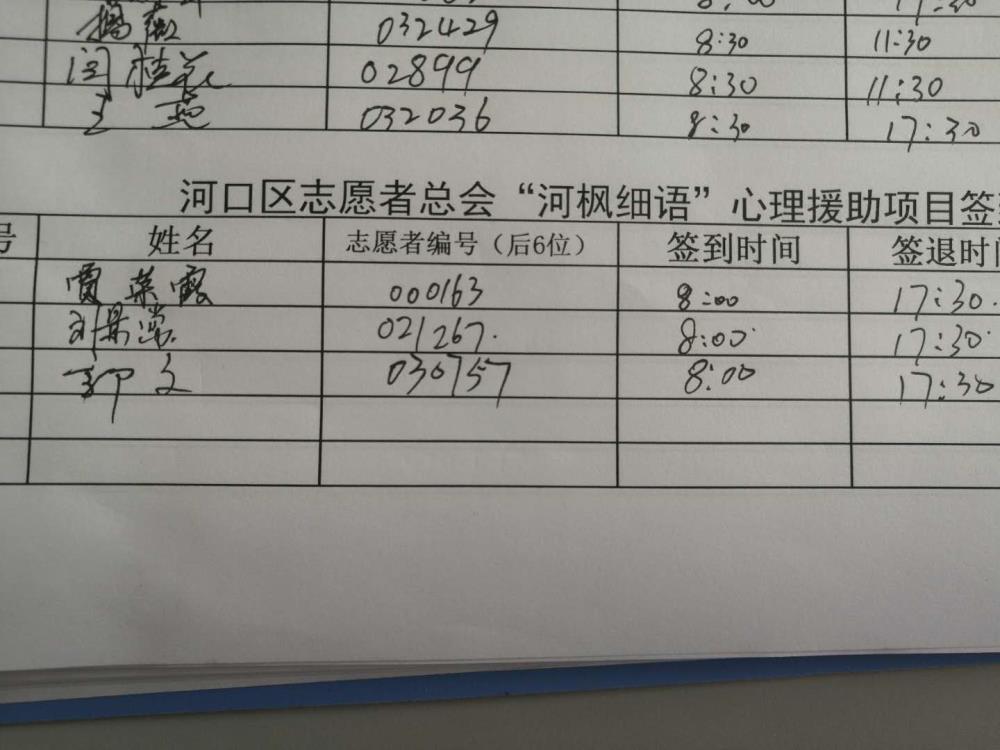 8:00 17:30
032429 8:30 11:30
闫桂花 02899 8:30 11:30
王燕 032036 8:30 17:30
河口区志愿者总会“河枫细语”心理援助项目签
号 姓名 志愿者编号（后6位） 签到时间 签退时间
贾荣霞 000163 8:00 17:30.
刘景常. 021267. 8:00 17:30
郭文 030757 8:00 17:30